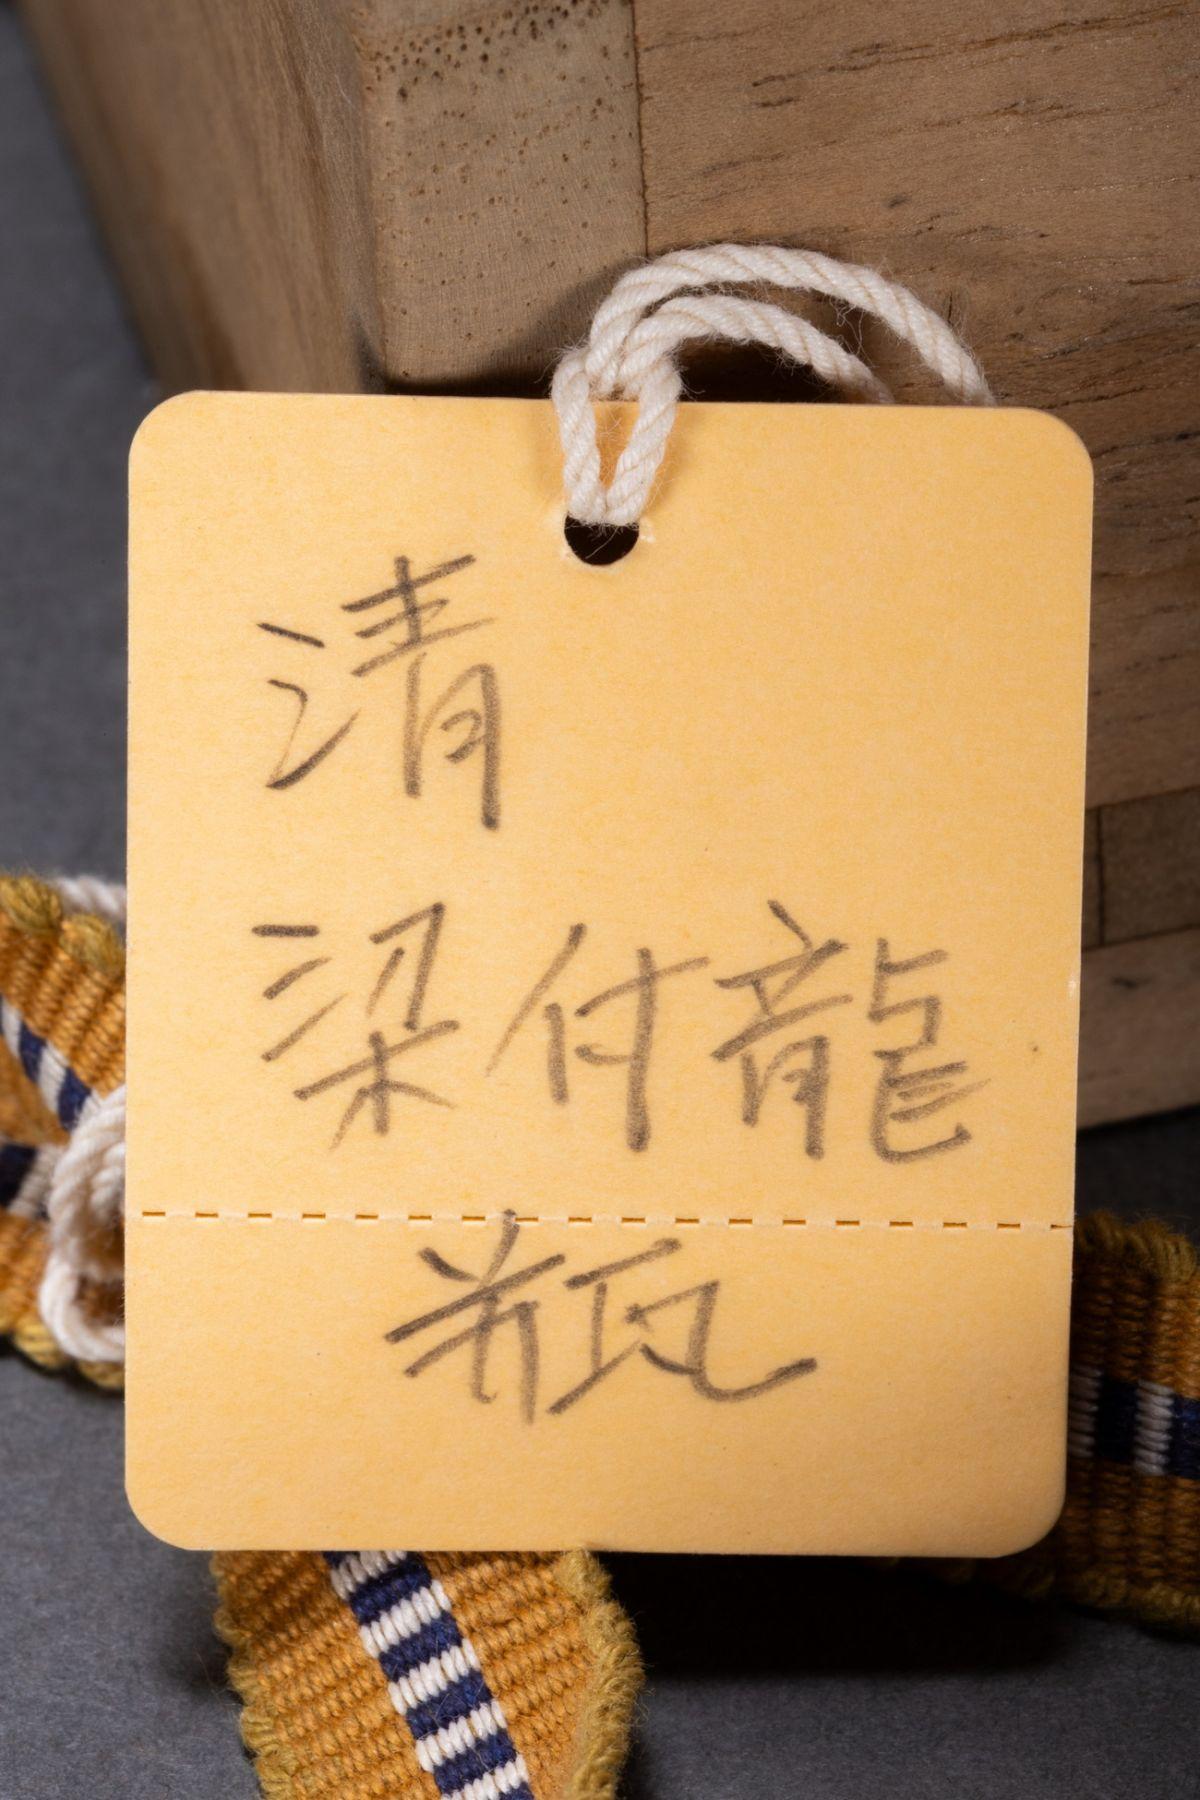 清
染付龍
瓶